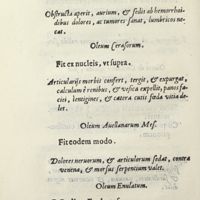 Obstructa aperit, aurium, & sedis ab hemorrhoi-
dibus dolores, ac tumores sanat, lumbricos ne-
cat.
Oleum Cerasorum.
Fit ex nucleis, vt supra.
Articularijs morbis confert, tergit, & expurgat,
calculum è renibus, & vesica expellit, panos fa-
ciei, lentigines, & cætera cutis fœda vitia de-
let.
Oleum Auellanarum Mes.
Fit eodem modo.
Dolores neruorum, & articulorum sedat, contra
venena, & morsus serpentium valet.
Oleum Enulatum.